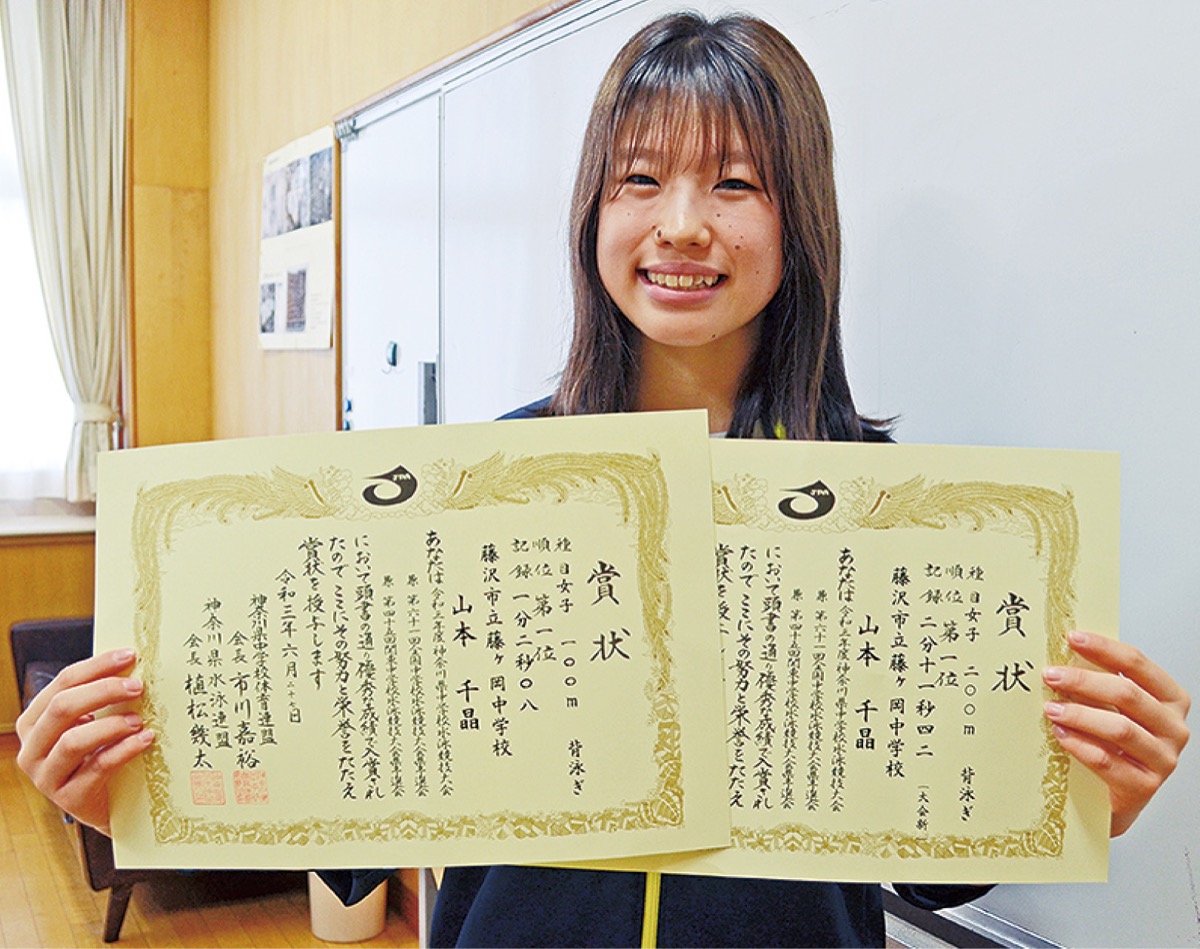 賞状
種目 女子 一〇〇m 背泳ぎ
順位 第一位
記録 一分二秒〇八
藤沢市立藤ヶ岡中学校
山本 千晶
あなたは 令和三年度神奈川県中学校水泳競技大会
兼 第六十一回全国中学校水泳競技大会県予選会
兼 第四十五回関東中学校水泳競技大会県予選会
において頭書の通り優秀な成績で入賞され
たのでここにその努力と栄誉をたたえ
賞状を授与します
令和三年六月二十七日
神奈川県中学校体育連盟
会長 市川嘉裕
神奈川県水泳連盟
会長 植松幾太
賞状
種目 女子 二〇〇m 背泳ぎ
順位 第一位
記録 二分十一秒四二 (大会新
藤沢市立藤ヶ岡中学校
山本 千晶
あなたは 令和三年度神奈川県中学校水泳競技大会
兼 第六十一回全国中学校水泳競技大会県予選会
兼 第四十五回関東中学校水泳競技大会県予選会
において頭書の通り優秀な成績で入賞され
たのでここにその努力と栄誉をたたえ
賞状を授